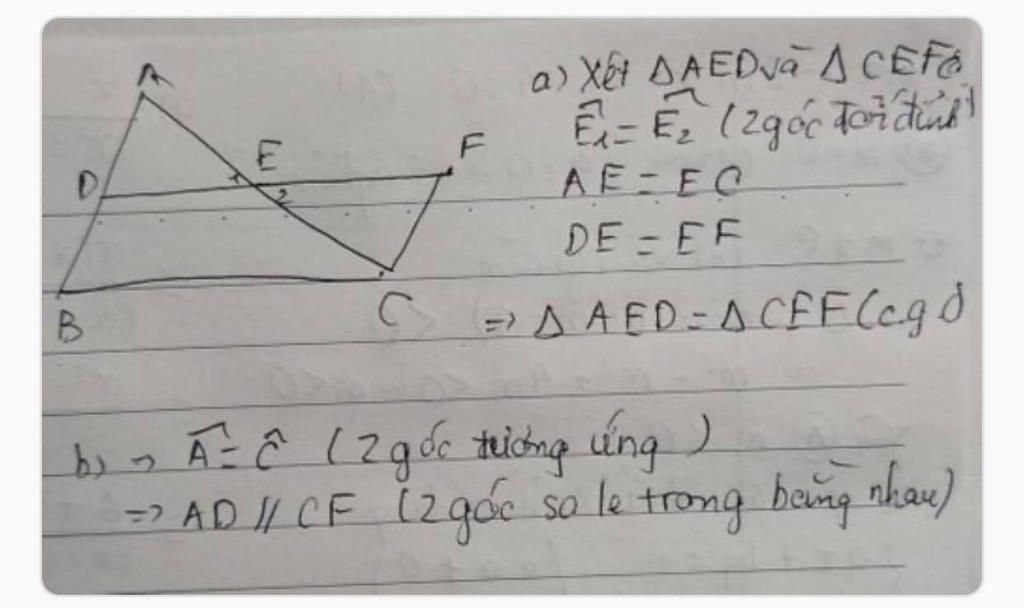 A
D
E
F
1
2
B
C
a) Xét Δ AED và Δ CEF có
Ê1 = Ê2 (2 góc đối đỉnh)
AE = EC
DE = EF
=> Δ AED = Δ CEF (c.g
b) → Â = Ĉ (2 góc tương ứng)
=> AD // CF (2 góc so le trong bằng nhau)